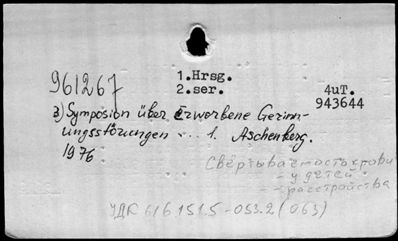 961267
1.Hrsg.
2.ser.
4uT.
943644
3) Symposion über Erworbene Gerinn-
ungsstörungen ... 1. Aschenberg.
1976
Свёртываемость крови
- у детей
- - расстройства
УДК 616 151.5 - 053.2 (063)